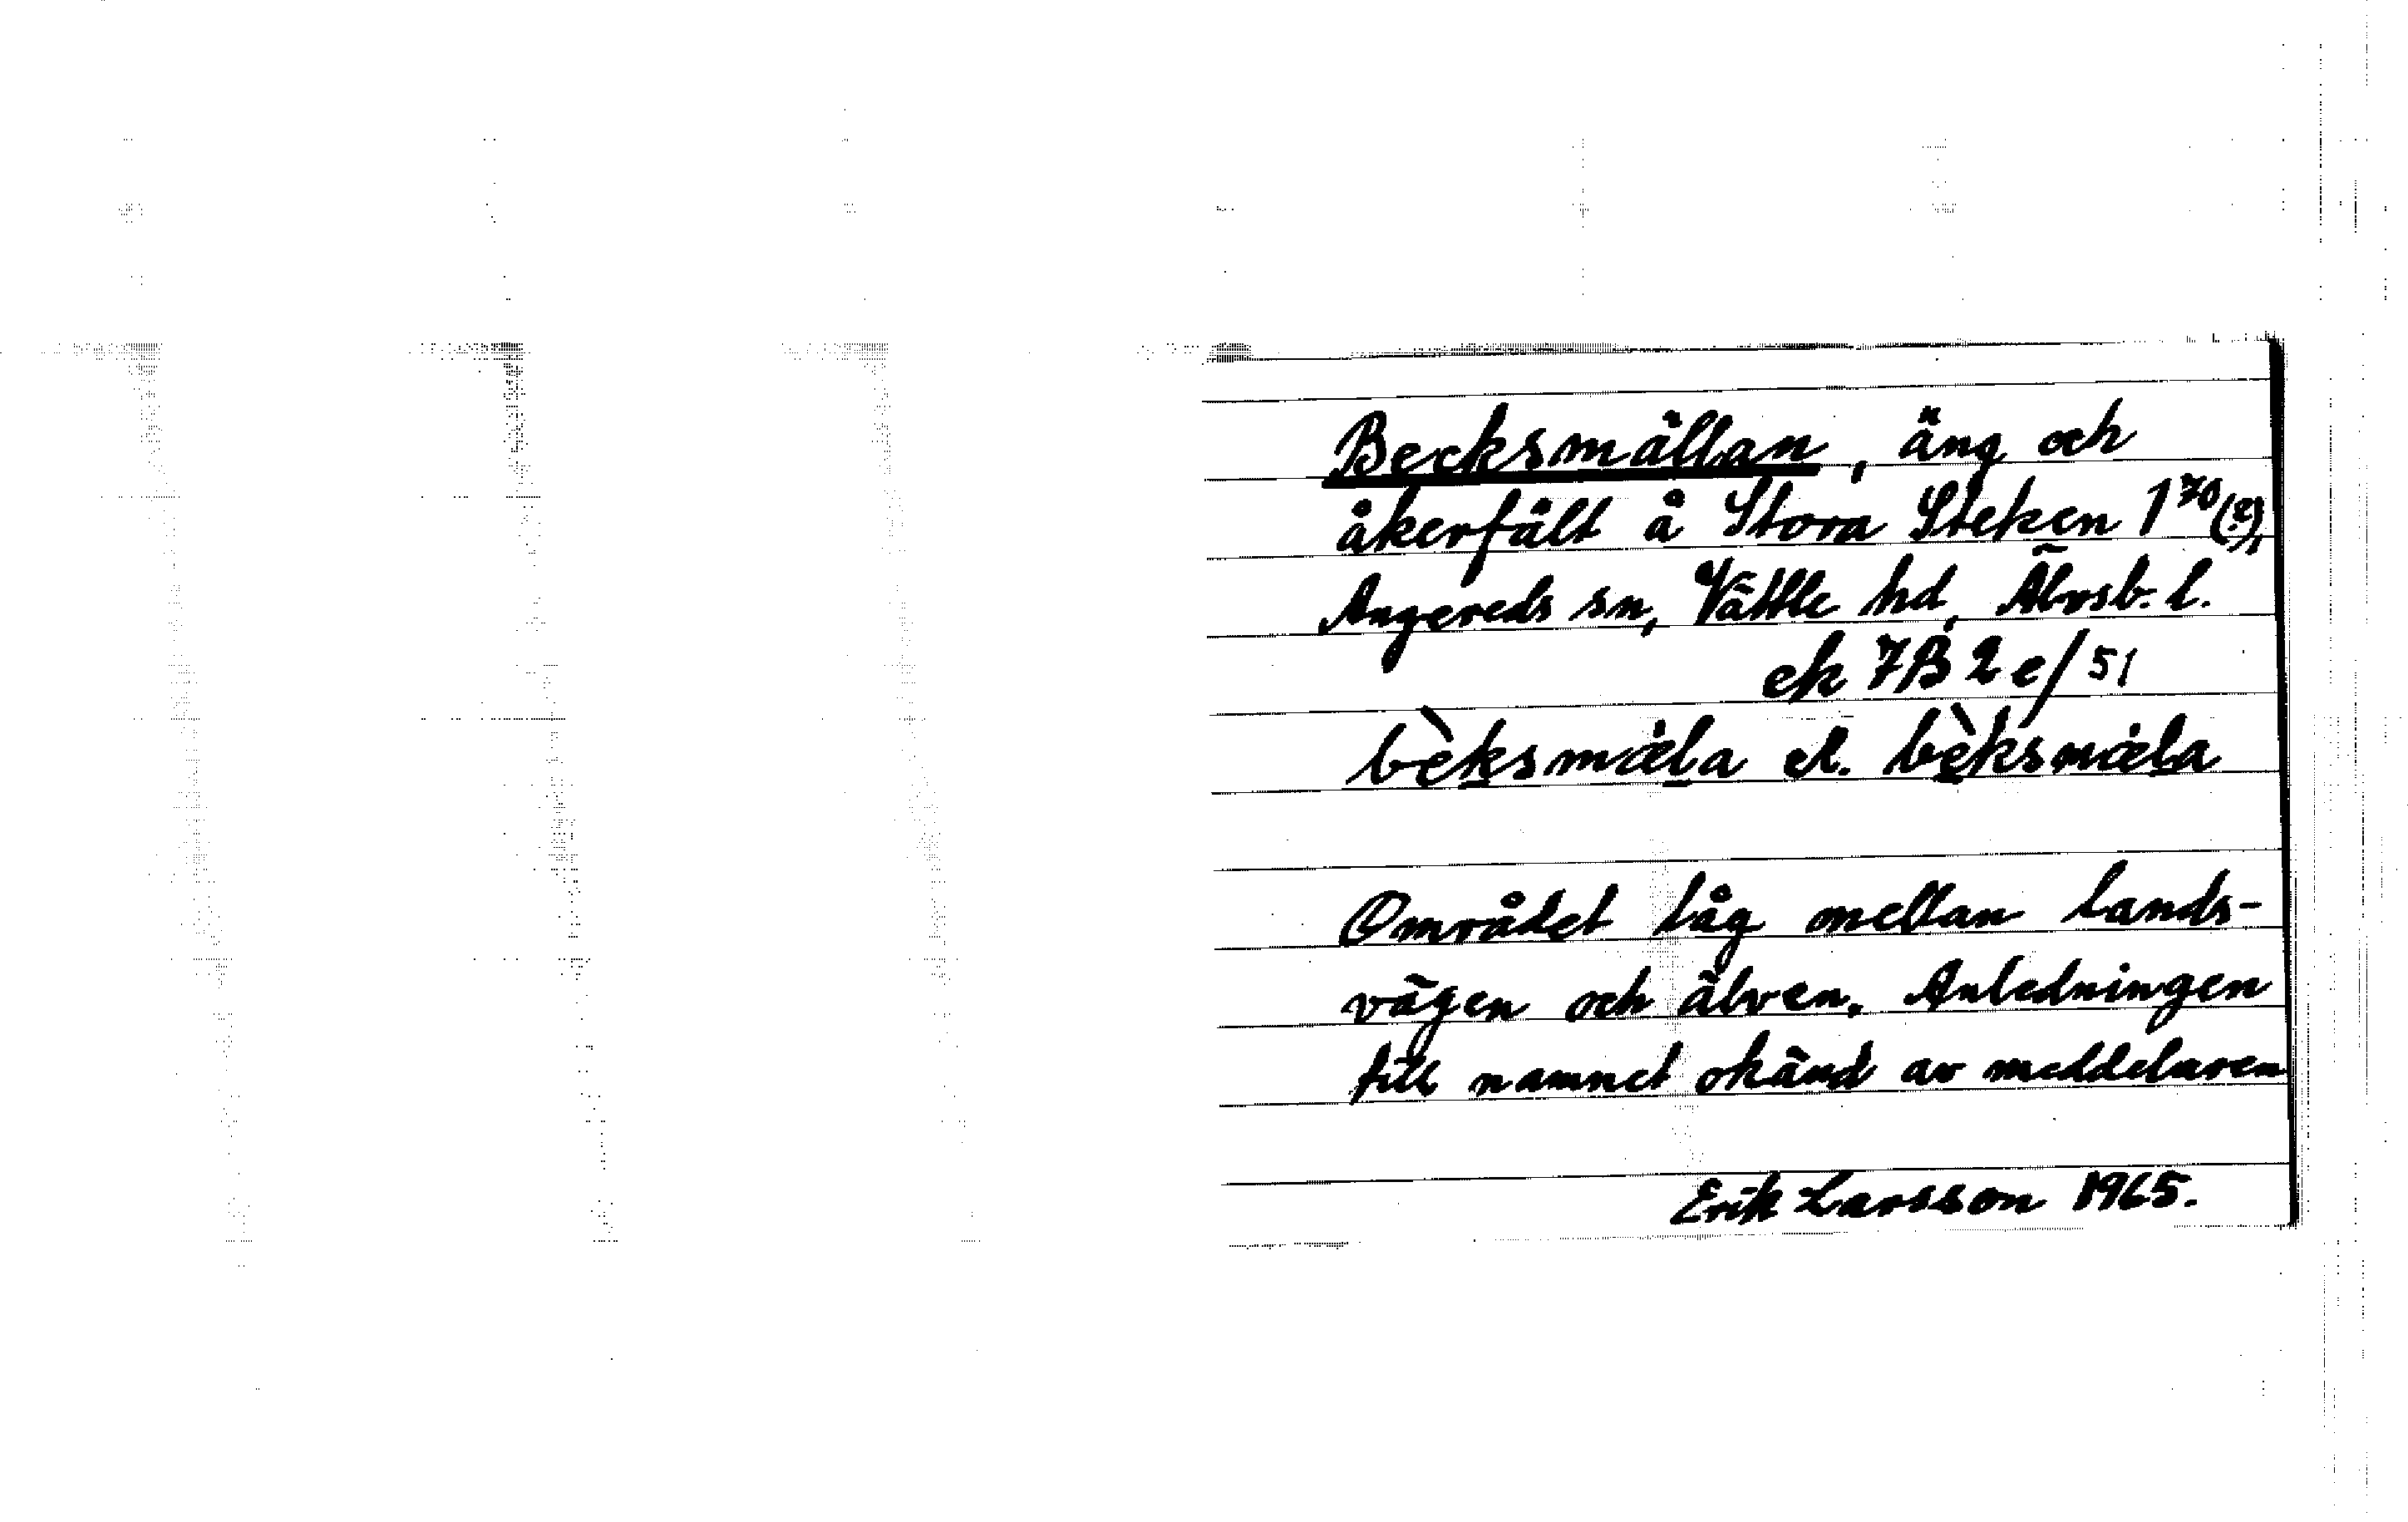 Becksmällan, äng och
åkerfält å Stora Steken 1⁷⁰(?),
Angereds sn, Vättle hd, Älvsb. l.
ek 7B 2 e/51
bèksmæla el. bèksmæla
Området låg mellan lands-
vägen och älven. Anledningen
till namnet okänd av meddelaren
Erik Larsson 1965.